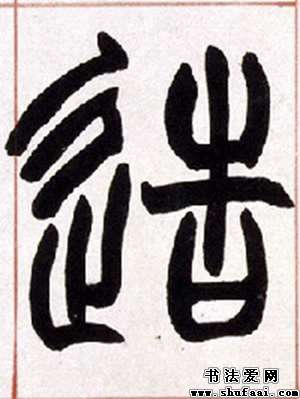 造
书法爱网
www.shufaai.com